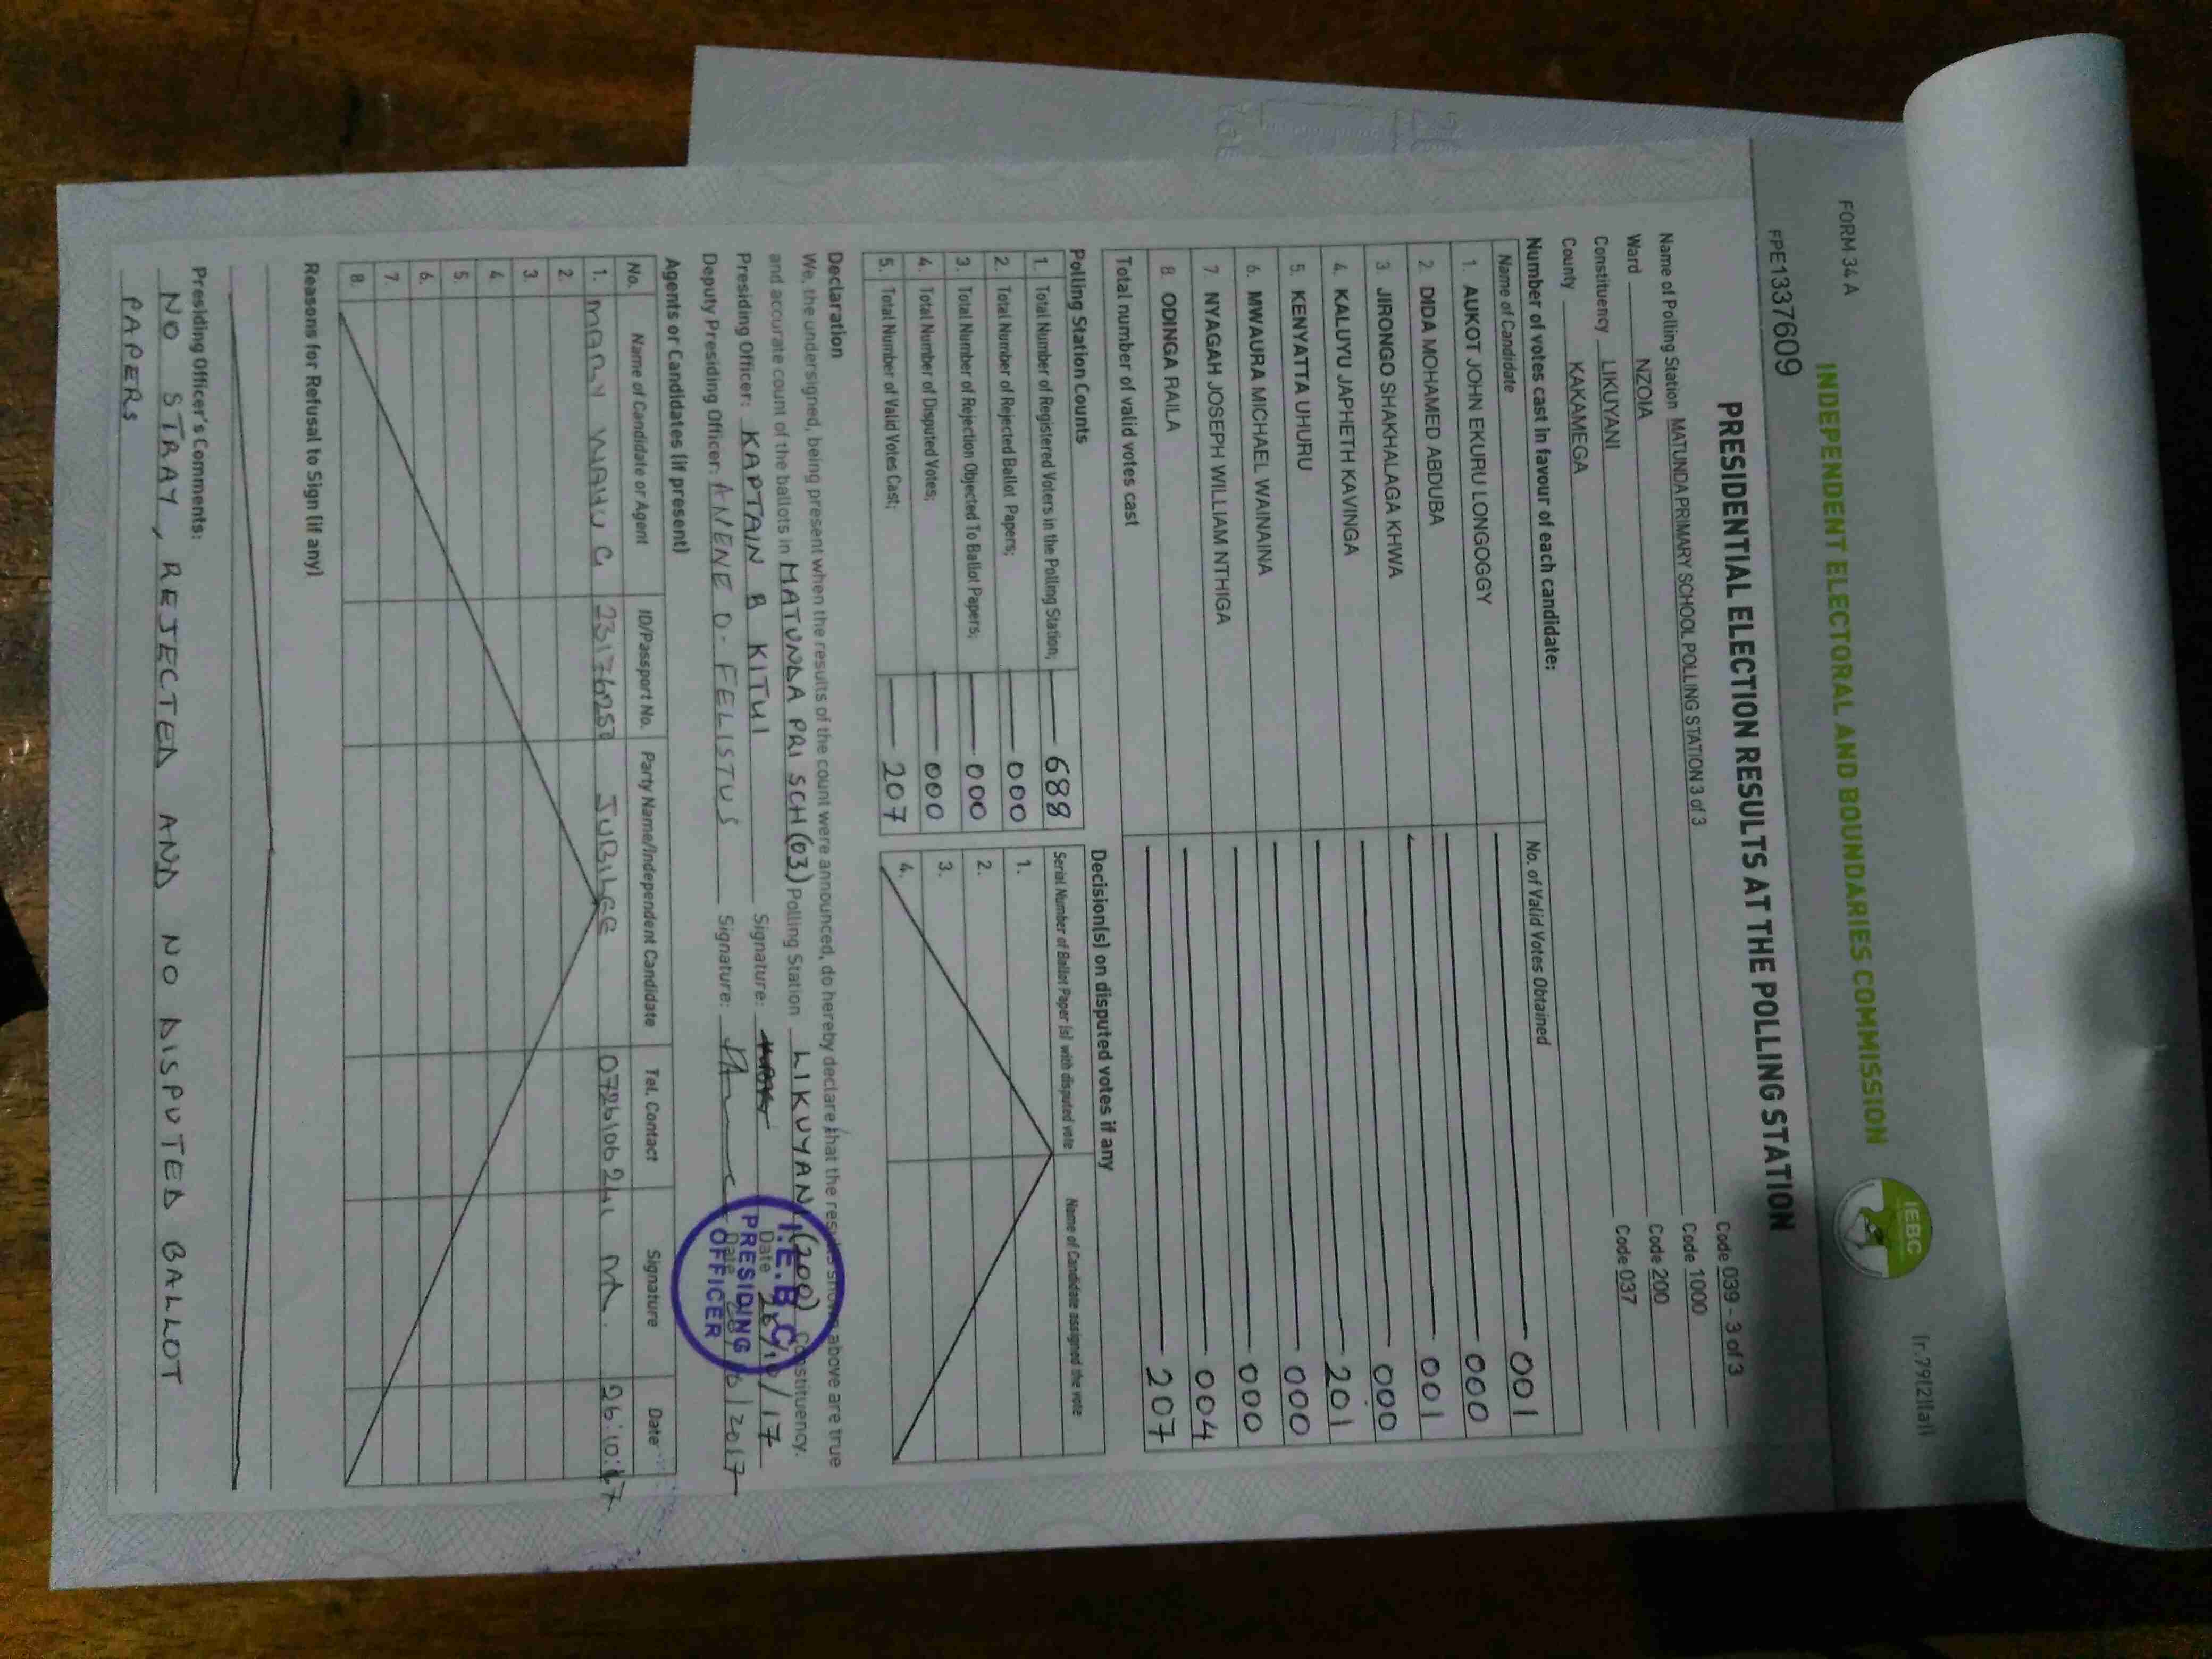 FORM 34 A
(r.79(2)(a))
INDEPENDENT ELECTORAL AND BOUNDARIES COMMISSION
IEBC
FPE1337609
PRESIDENTIAL ELECTION RESULTS AT THE POLLING STATION
Name of Polling Station MATUNDA PRIMARY SCHOOL POLLING STATION 3 of 3 Code 039 - 3 of 3
Ward NZOIA Code 1000
Constituency LIKUYANI Code 200
County KAKAMEGA Code 037
Number of votes cast in favour of each candidate:
Name of Candidate No. of Valid Votes Obtained
1. AUKOT JOHN EKURU LONGOGGY 001
2. DIDA MOHAMED ABDUBA 000
3. JIRONGO SHAKHALAGA KHWA 001
4. KALUYU JAPHETH KAVINGA 000
5. KENYATTA UHURU 201
6. MWAURA MICHAEL WAINAINA 000
7. NYAGAH JOSEPH WILLIAM NTHIGA 000
8. ODINGA RAILA 004
Total number of valid votes cast 207
Polling Station Counts
1. Total Number of Registered Voters in the Polling Station; 688
2. Total Number of Rejected Ballot Papers; 000
3. Total Number of Rejection Objected To Ballot Papers; 000
4. Total Number of Disputed Votes; 000
5. Total Number of Valid Votes Cast; 207
Decision(s) on disputed votes if any
Serial Number of Ballot Paper (s) with disputed vote Name of Candidate assigned the vote
1.
2.
3.
4.
Declaration
We, the undersigned, being present when the results of the count were announced, do hereby declare that the results shown above are true
and accurate count of the ballots in MATUNDA PRI SCH (03) Polling Station LIKUYANI (200) Constituency.
Presiding Officer: KAPTAIN B KITUI Signature: Date 26/10/17
Deputy Presiding Officer: ANENE D. FELISTUS Signature: Date 26/10/2017
I.E.B.C
PRESIDING
OFFICER
Agents or Candidates (if present)
No. Name of Candidate or Agent ID/Passport No. Party Name/Independent Candidate Tel. Contact Signature Date
1. MARY WAHU C 23176250 JUBILEE 26:10:17
2.
3.
4.
5.
6.
7.
8.
Reasons for Refusal to Sign (if any)
Presiding Officer's Comments:
NO STRAY, REJECTED AND NO DISPUTED BALLOT
PAPERS